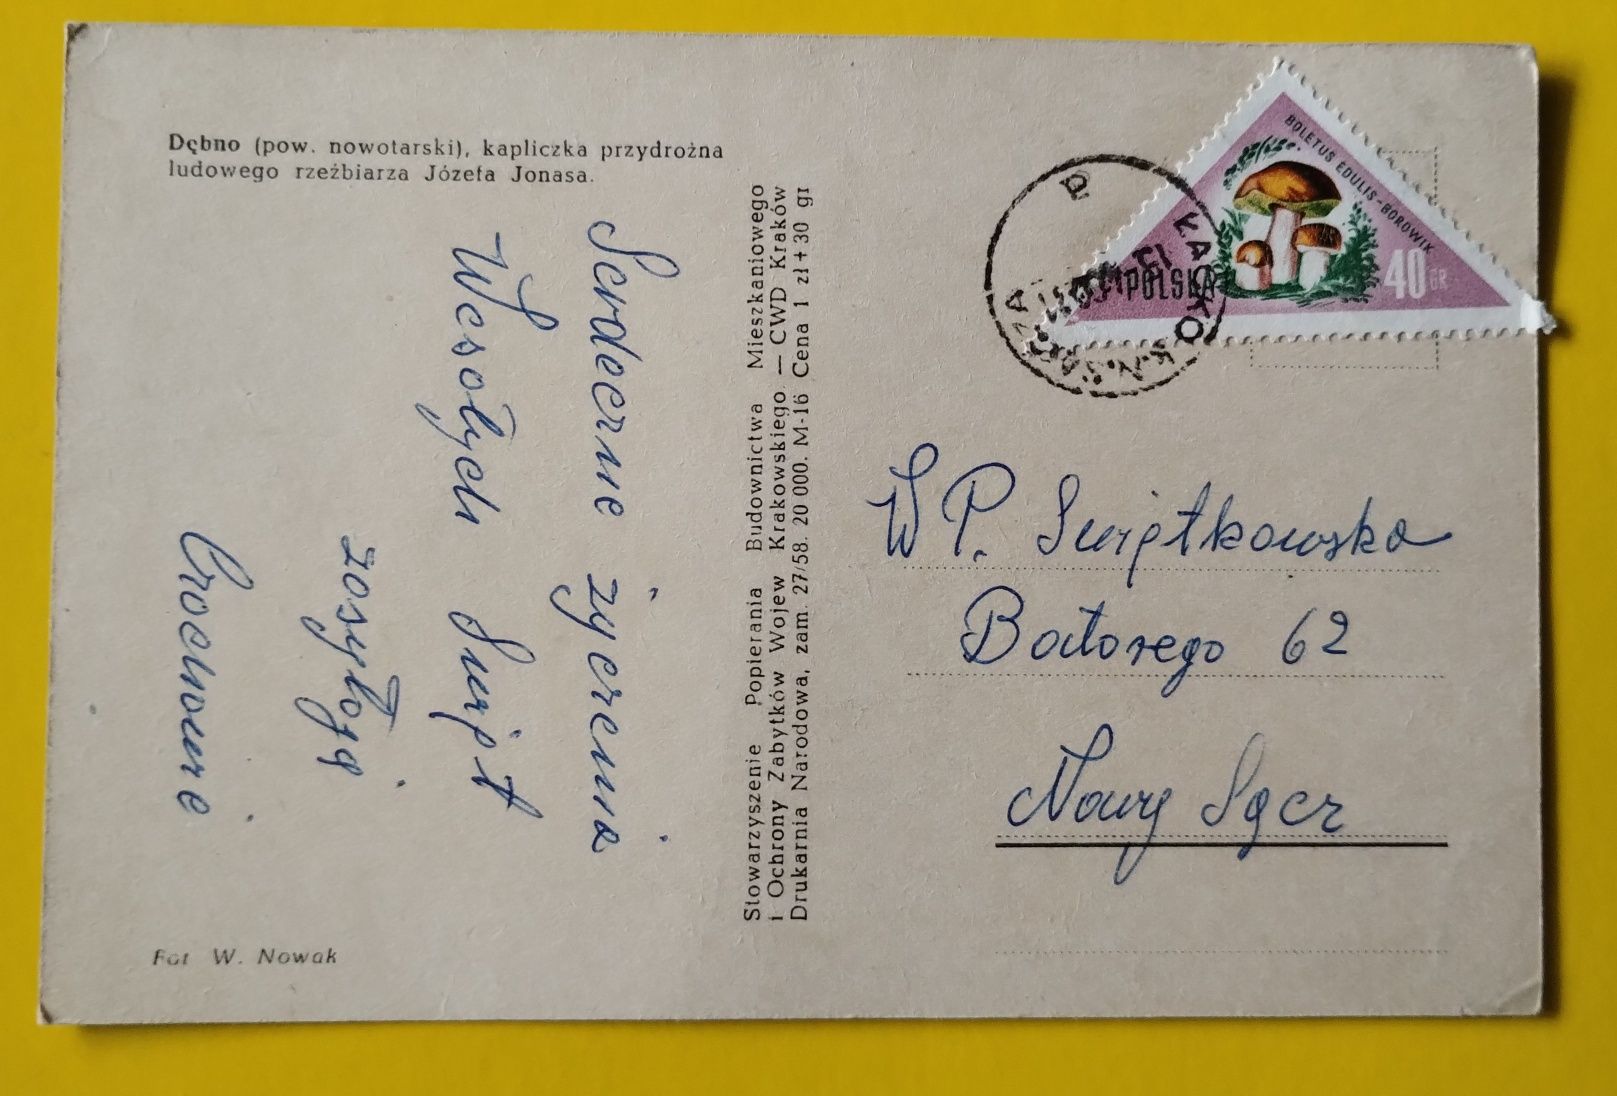 Dębno (pow. nowotarski), kapliczka przydrożna
ludowego rzeźbiarza Józefa Jonasa.
Serdecznie życzenia
Wesołych Świąt
zasyłają
Fot W. Nowak
Stowarzyszenie Popierania Budownictwa Mieszkaniowego
i Ochrony Zabytków Wojew Krakowskiego — CWD Kraków
Drukarnia Narodowa, zam. 27/58. 20 000. M-16 Cena 1 zł + 30 gr
BOLETUS EDULIS-BOROWIK
POLSKA
40 GR
ŁĄCKO
K.N.SĄCZA
W P. Świątkowska
Batorego 62
Nowy Sącz